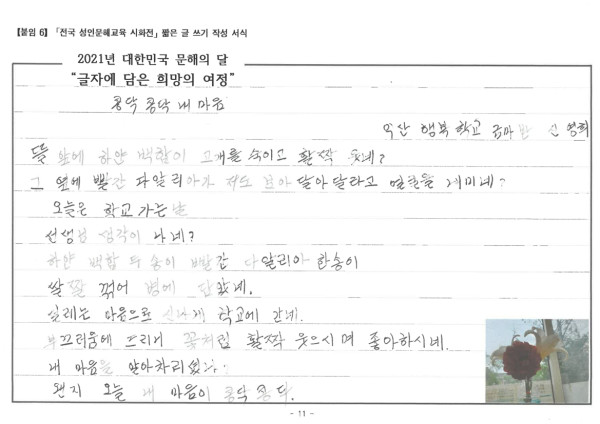 【붙임 6】 「전국 성인문해교육 시화전」 짧은 글 쓰기 작성 서식
2021년 대한민국 문해의 달
“글자에 담은 희망의 여정”
콩닥 콩닥 내 마음
익산 행복 학교 신 영희
뜰 앞에 하얀 백합이 고개를 숙이고 활짝 웃네?
그 옆에 빨간 다알리아가 저도 보아 달아달라고 얼굴을 내미네?
오늘은 학교 가는 날
선생님 생각이 나네?
하얀 백합 두 송이 빨간 다알리아 한송이
쌀짝 꺾어 병에 담았네.
설레는 마음으로 신나게 학교에 간네.
부끄러움에 드리니 꽃처럼 활짝 웃으시며 좋아하시네.
내 마음을 알아차리셨나
왠지 오늘 내 마음이 콩닥 콩닥.
- 11 -